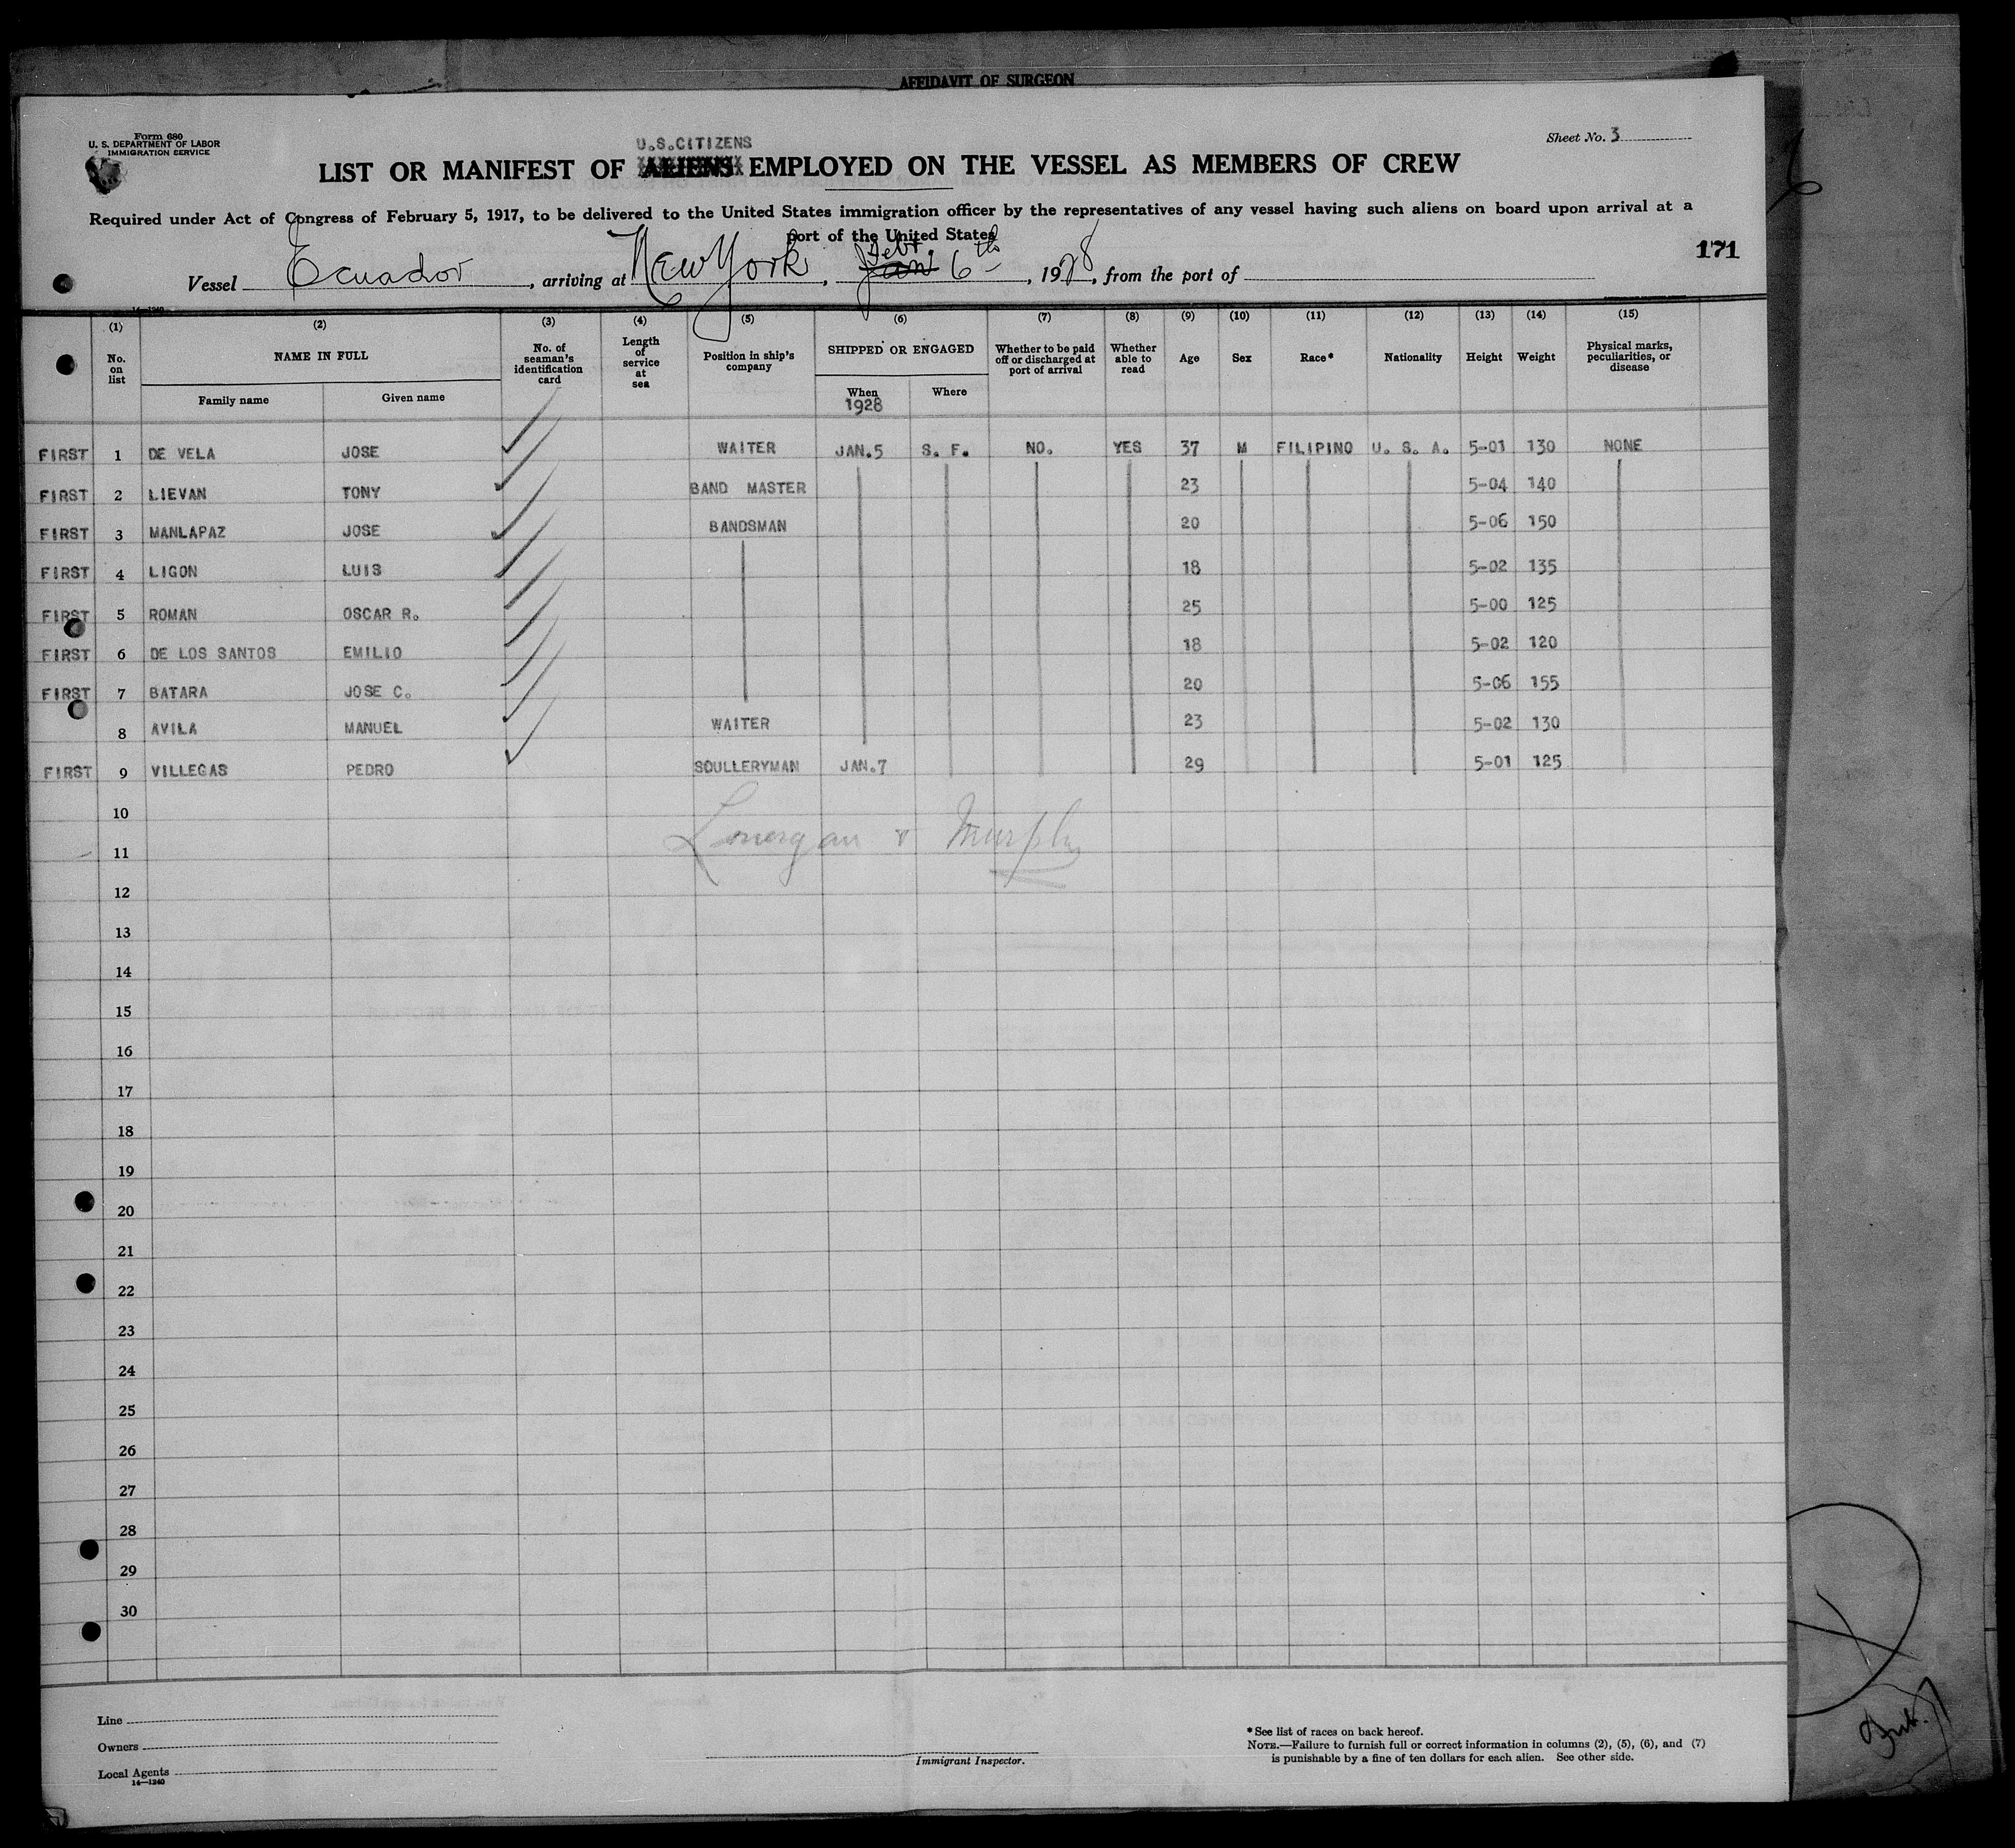 AFFIDAVIT OF SURGEON
Form 680
U. S. DEPARTMENT OF LABOR
IMMIGRATION SERVICE
Sheet No. 3
U.S.CITIZENS
LIST OR MANIFEST OF ALIENS EMPLOYED ON THE VESSEL AS MEMBERS OF CREW
Required under Act of Congress of February 5, 1917, to be delivered to the United States immigration officer by the representatives of any vessel having such aliens on board upon arrival at a
port of the United States
171
Vessel Ecuador, arriving at New York, Jan Feb. 6th, 1928, from the port of
14—1240
(1) (2) (3) (4) (5) (6) (7) (8) (9) (10) (11) (12) (13) (14) (15)
No. on list
NAME IN FULL
Family name
Given name
No. of seaman's identification card
Length of service at sea
Position in ship's company
SHIPPED OR ENGAGED
When
1928
Where
Whether to be paid off or discharged at port of arrival
Whether able to read
Age
Sex
Race*
Nationality
Height
Weight
Physical marks, peculiarities, or disease
FIRST 1 DE VELA JOSE WAITER JAN.5 S. F. NO. YES 37 M FILIPINO U. S. A. 5-01 130 NONE
FIRST 2 LIEVAN TONY BAND MASTER 23 5-04 140
FIRST 3 MANLAPAZ JOSE BANDSMAN 20 5-06 150
FIRST 4 LIGON LUIS 18 5-02 135
FIRST 5 ROMAN OSCAR R. 25 5-00 125
FIRST 6 DE LOS SANTOS EMILIO 18 5-02 120
FIRST 7 BATARA JOSE C. 20 5-06 155
8 AVILA MANUEL WAITER 23 5-02 130
FIRST 9 VILLEGAS PEDRO SOULLERYMAN JAN.7 29 5-01 125
10
Lonergan & Murphy
11
12
13
14
15
16
17
18
19
20
21
22
23
24
25
26
27
28
29
30
Line
Owners
Local Agents
14—1240
Immigrant Inspector.
*See list of races on back hereof.
NOTE.—Failure to furnish full or correct information in columns (2), (5), (6), and (7)
is punishable by a fine of ten dollars for each alien. See other side.